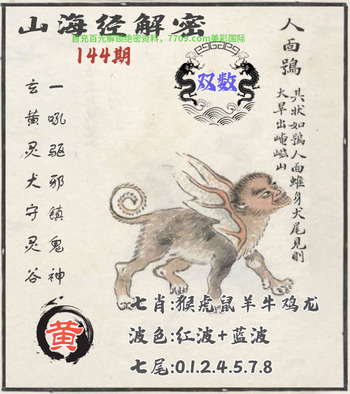 山海经解密
首充百元解锁绝密资料，7703.com美彩国际
144期
双数
人面鴞
其状如鴞人面蜼身犬尾见则
大旱出崦嵫山
一吼驱邪镇鬼神
玄黄灵犬守灵谷
黄
七肖:猴虎鼠羊牛鸡龙
波色:红波+蓝波
七尾:0.1.2.4.5.7.8